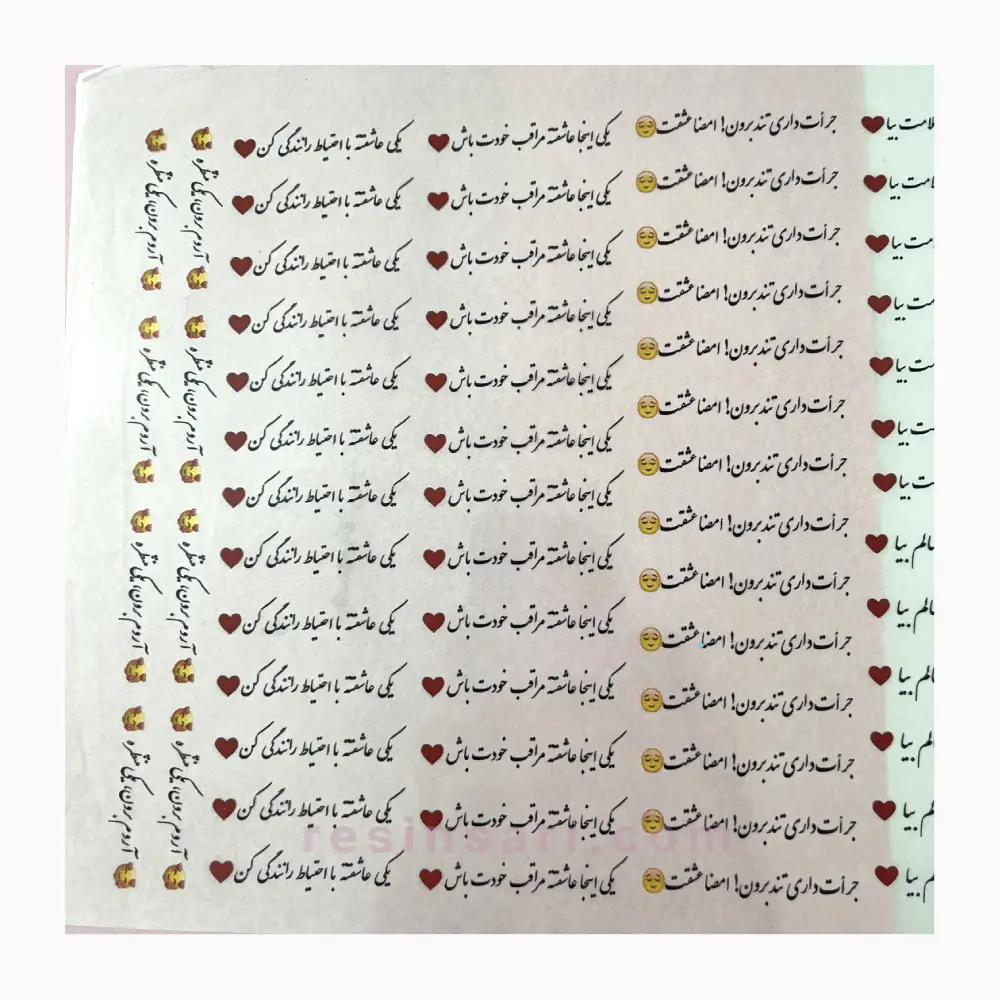 بیا
بیا
بیا
بیا
بیا
بیا
بیا
بیا
بیا
بیا
بیا
بیا
بیا
جرأت داری تند برون! امضا عشقت
جرأت داری تند برون! امضا عشقت
جرأت داری تند برون! امضا عشقت
جرأت داری تند برون! امضا عشقت
جرأت داری تند برون! امضا عشقت
جرأت داری تند برون! امضا عشقت
جرأت داری تند برون! امضا عشقت
جرأت داری تند برون! امضا عشقت
جرأت داری تند برون! امضا عشقت
جرأت داری تند برون! امضا عشقت
جرأت داری تند برون! امضا عشقت
جرأت داری تند برون! امضا عشقت
جرأت داری تند برون! امضا عشقت
جرأت داری تند برون! امضا عشقت
یکی اینجا عاشقته مراقب خودت باش
یکی اینجا عاشقته مراقب خودت باش
یکی اینجا عاشقته مراقب خودت باش
یکی اینجا عاشقته مراقب خودت باش
یکی اینجا عاشقته مراقب خودت باش
یکی اینجا عاشقته مراقب خودت باش
یکی اینجا عاشقته مراقب خودت باش
یکی اینجا عاشقته مراقب خودت باش
یکی اینجا عاشقته مراقب خودت باش
یکی اینجا عاشقته مراقب خودت باش
یکی اینجا عاشقته مراقب خودت باش
یکی اینجا عاشقته مراقب خودت باش
یکی اینجا عاشقته مراقب خودت باش
یکی عاشقته با احتیاط رانندگی کن
یکی عاشقته با احتیاط رانندگی کن
یکی عاشقته با احتیاط رانندگی کن
یکی عاشقته با احتیاط رانندگی کن
یکی عاشقته با احتیاط رانندگی کن
یکی عاشقته با احتیاط رانندگی کن
یکی عاشقته با احتیاط رانندگی کن
یکی عاشقته با احتیاط رانندگی کن
یکی عاشقته با احتیاط رانندگی کن
یکی عاشقته با احتیاط رانندگی کن
یکی عاشقته با احتیاط رانندگی کن
یکی عاشقته با احتیاط رانندگی کن
یکی عاشقته با احتیاط رانندگی کن
آروم برون، یکی منتظره
آروم برون، یکی منتظره
آروم برون، یکی منتظره
آروم برون، یکی منتظره
آروم برون، یکی منتظره
آروم برون، یکی منتظره
آروم برون، یکی منتظره
آروم برون، یکی منتظره
resinsari.com